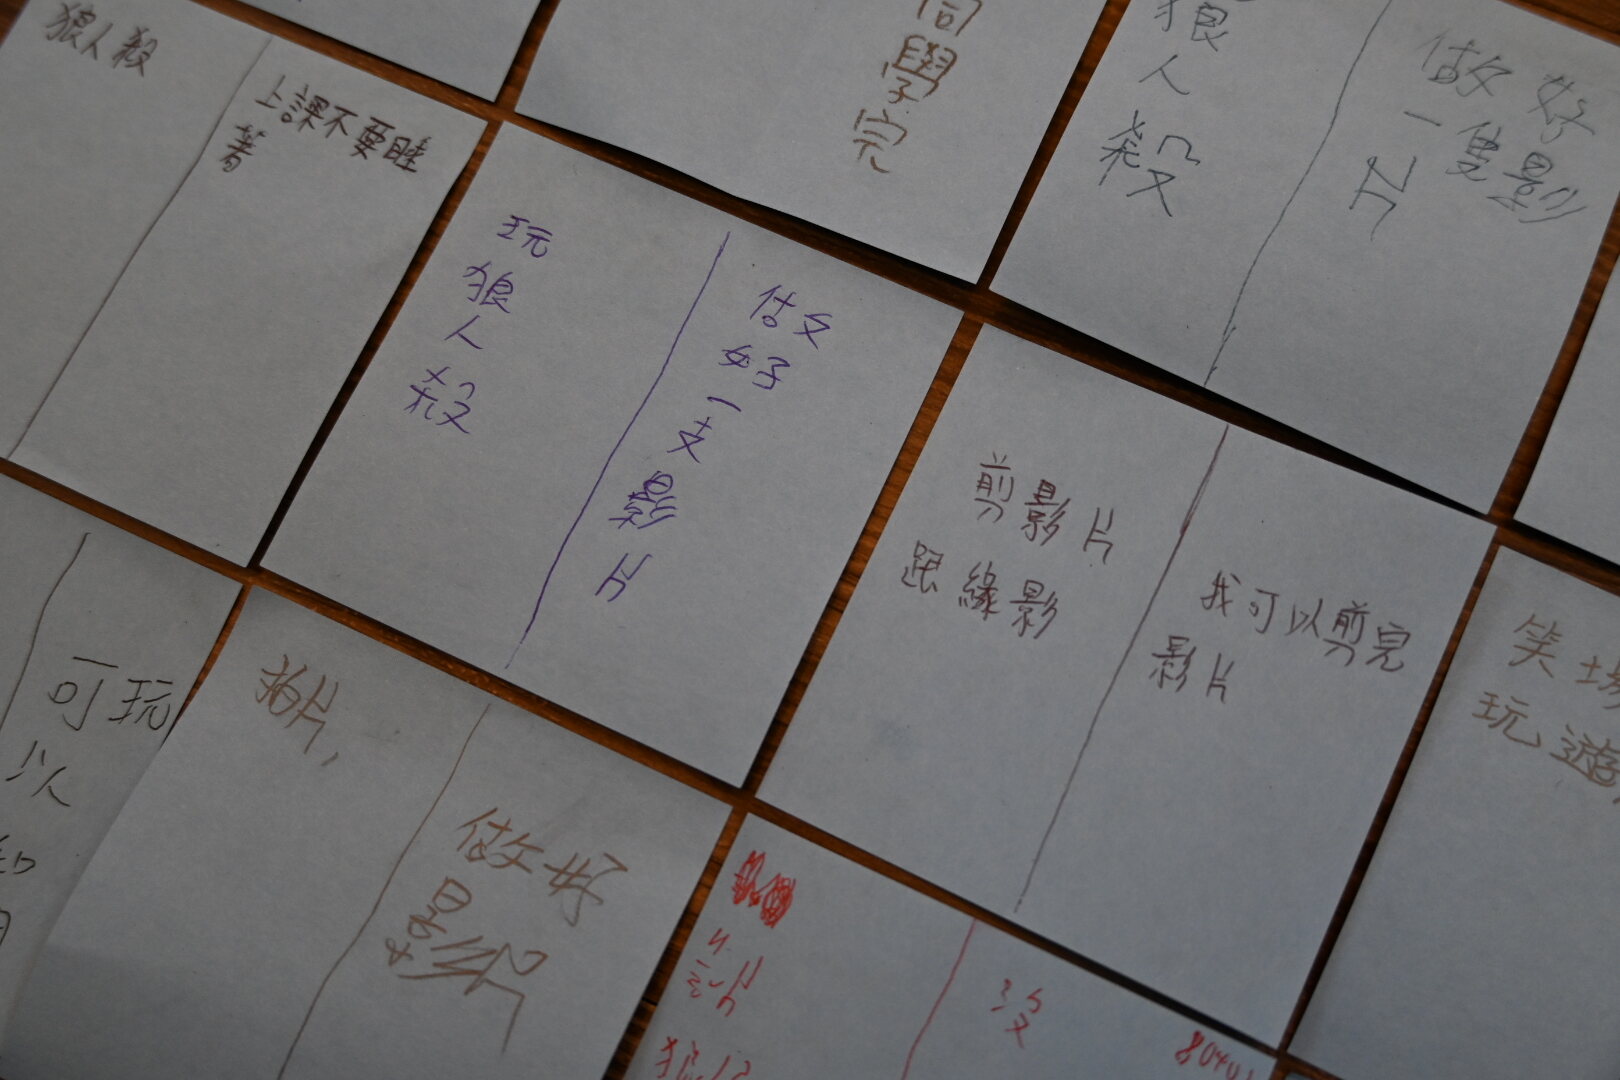 狼人殺
上課不要睡
著
同學完
狼人殺
做好
一隻影
片
玩狼人殺
做好一支影片
剪影片
跟緣影
我可以剪完
影片
笑場
玩遊
可玩
以
拍片,
做好
影片
沒